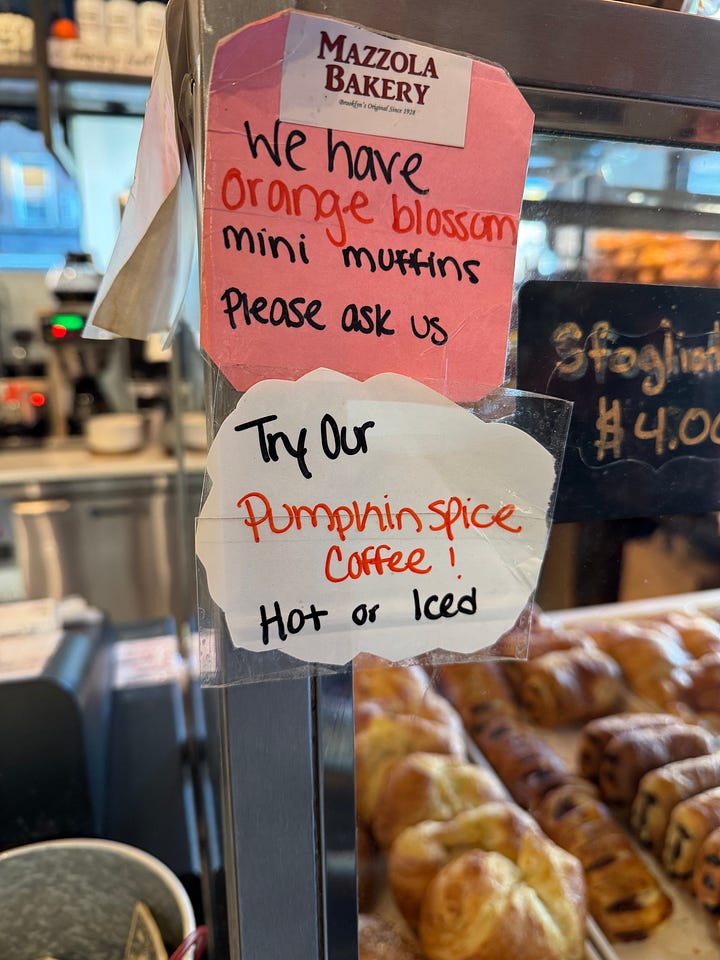 MAZZOLA
BAKERY
Brooklyn's Original Since 1928
We have
orange blossum
mini muffins
Please ask us
Try Our
Pumpkin spice
Coffee !
Hot or Iced
$4.00